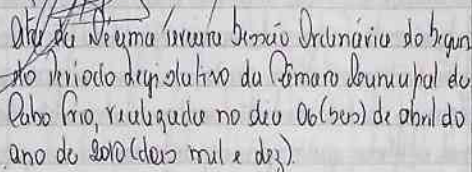 Ata da Décima Terceira Sessão Ordinária do Segun
do Período Legislativo da Câmara Municipal de
Cabo Frio, realizada no dia 06 (seis) de abril do
ano de 2010 (dois mil e dez).